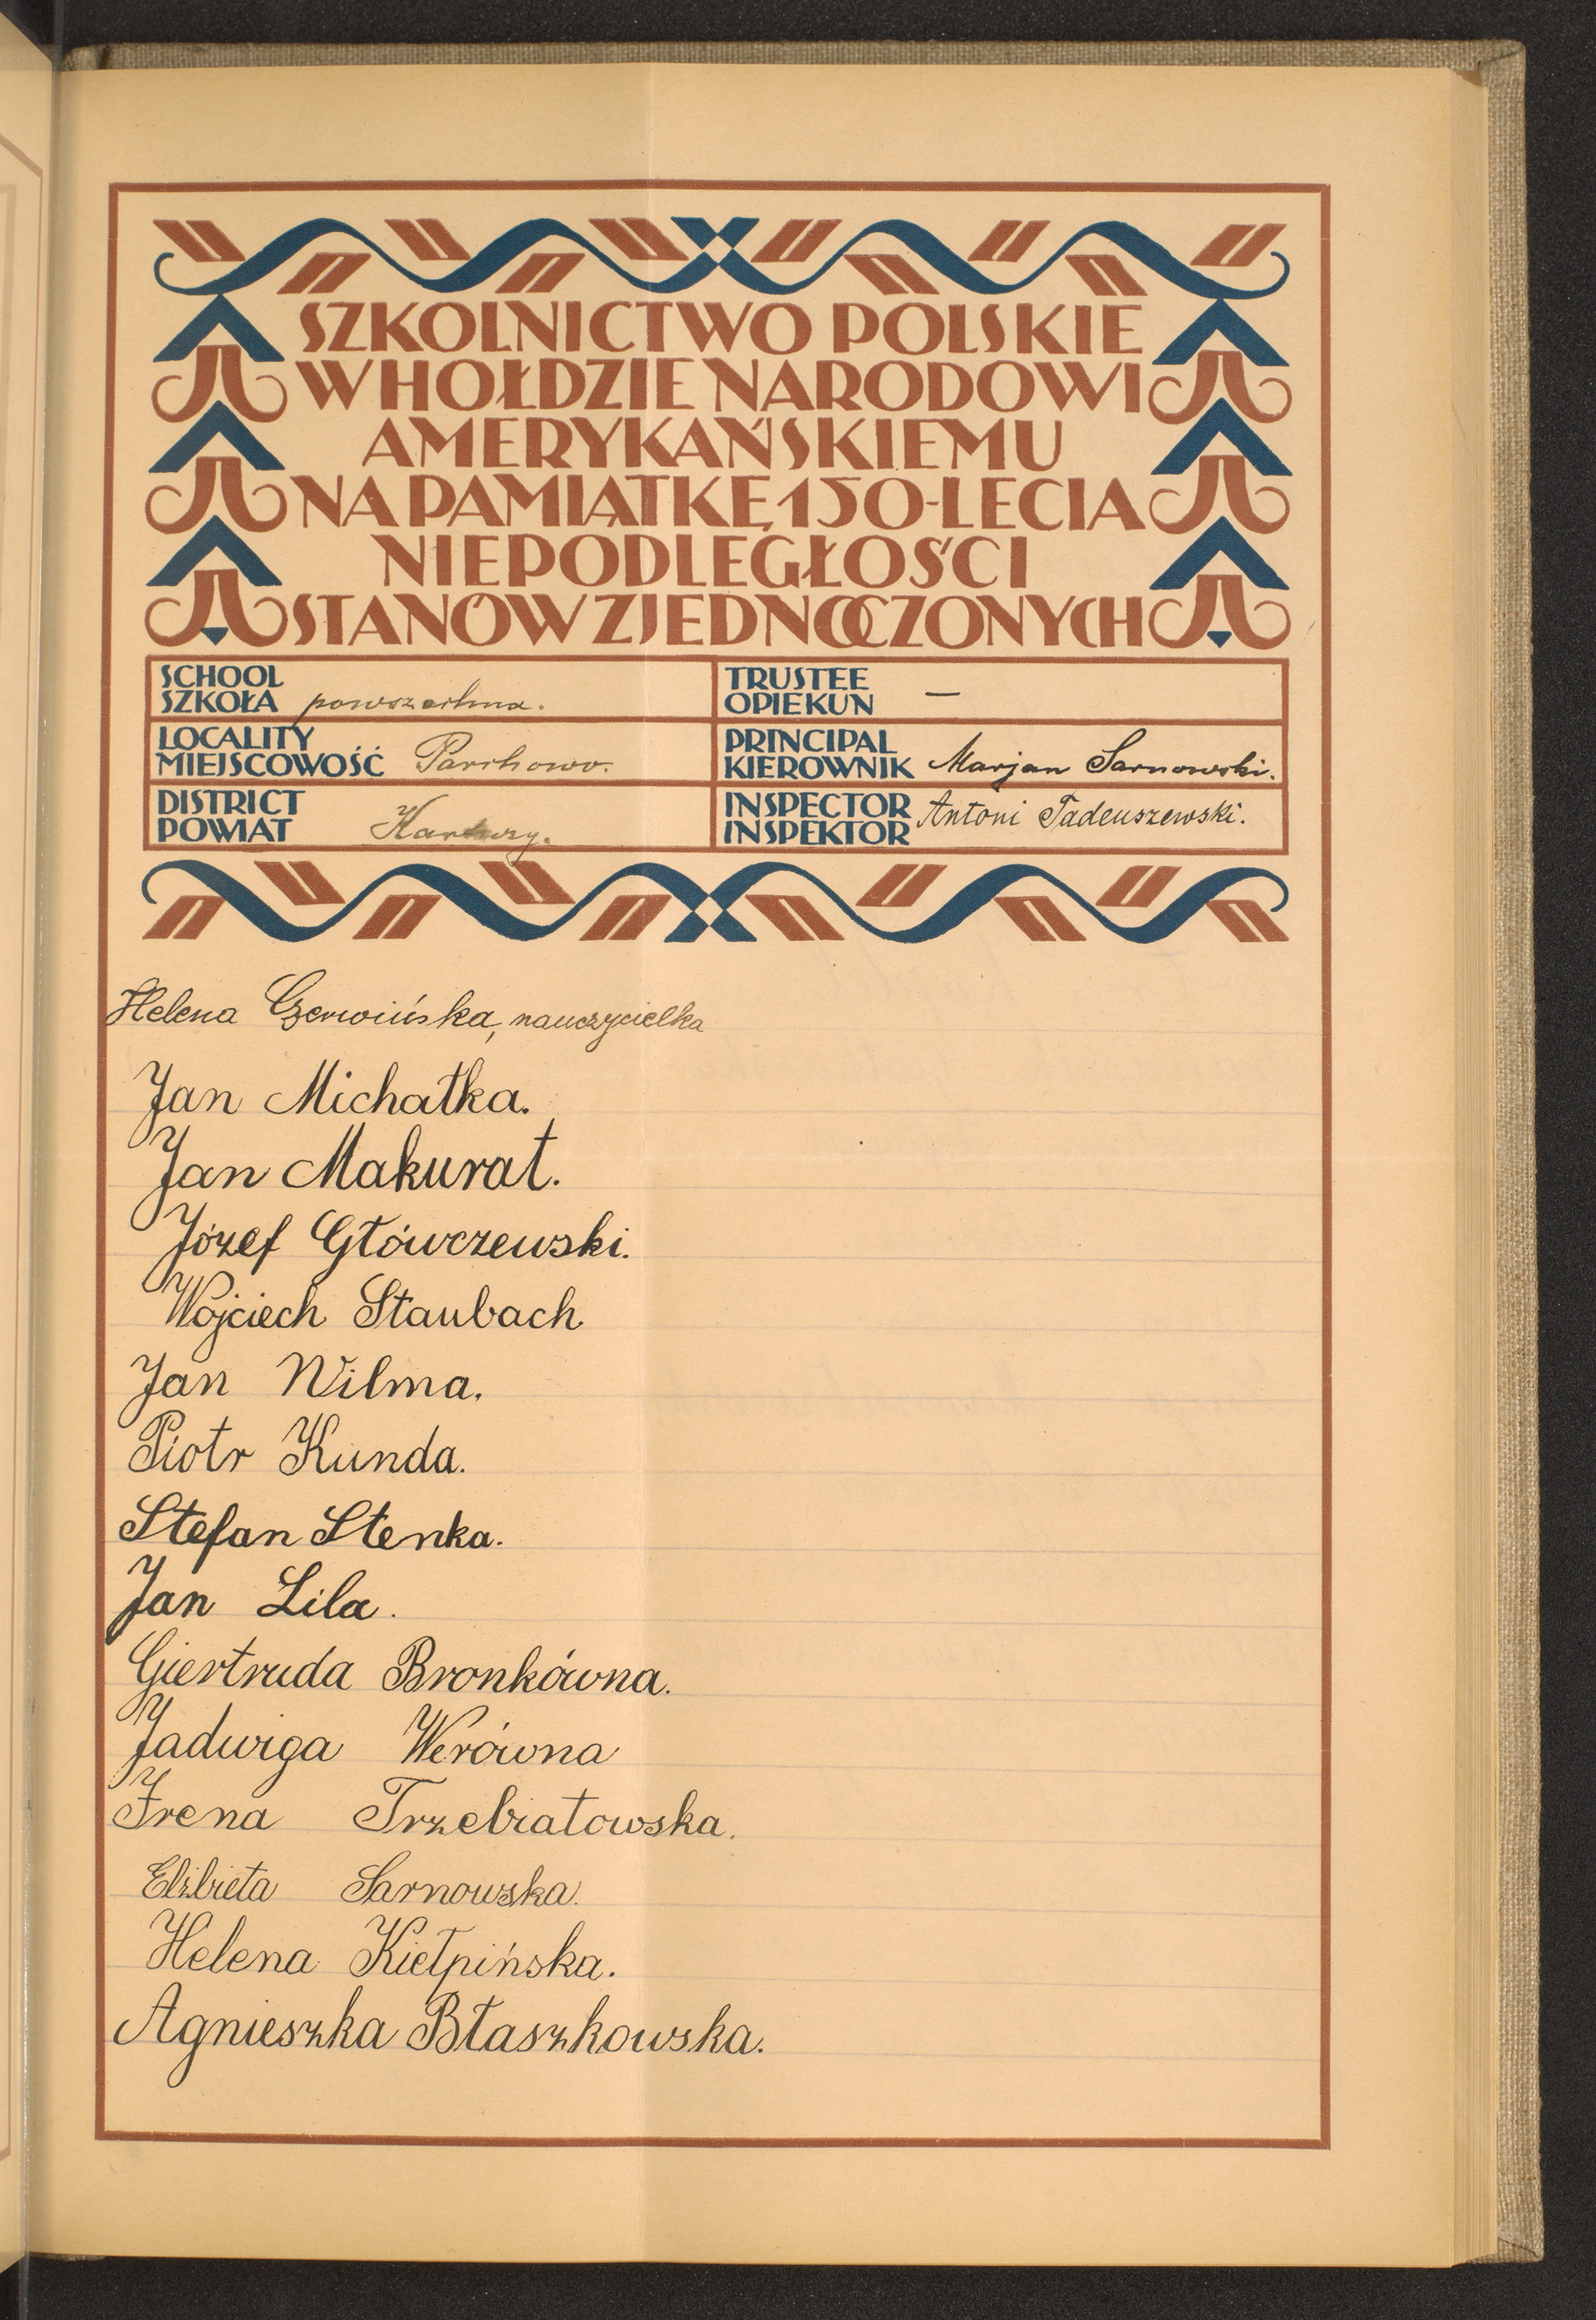 SZKOLNICTWO POLSKIE
W HOŁDZIE NARODOWI
AMERYKAŃSKIEMU
NA PAMIĄTKĘ 150-LECIA
NIEPODLEGŁOŚCI
STANÓW ZJEDNOCZONYCH
SCHOOL
SZKOŁA powszechna.
TRUSTEE
OPIEKUN —
LOCALITY
MIEJSCOWOŚĆ Parchowo.
PRINCIPAL
KIEROWNIK Marjan Sarnowski.
DISTRICT
POWIAT Kartuzy.
INSPECTOR
INSPEKTOR Antoni Tadeuszewski.
Helena Czerwińska, nauczycielka
Jan Michałka.
Jan Makurat.
Józef Główczewski.
Wojciech Staubach
Jan Wilma.
Piotr Kunda.
Stefan Stenka.
Jan Lila.
Giertruda Bronkówna.
Jadwiga Werówna
Irena Trzebiatowska.
Elżbieta Sarnowska.
Helena Kiełpińska.
Agnieszka Błaszkowska.